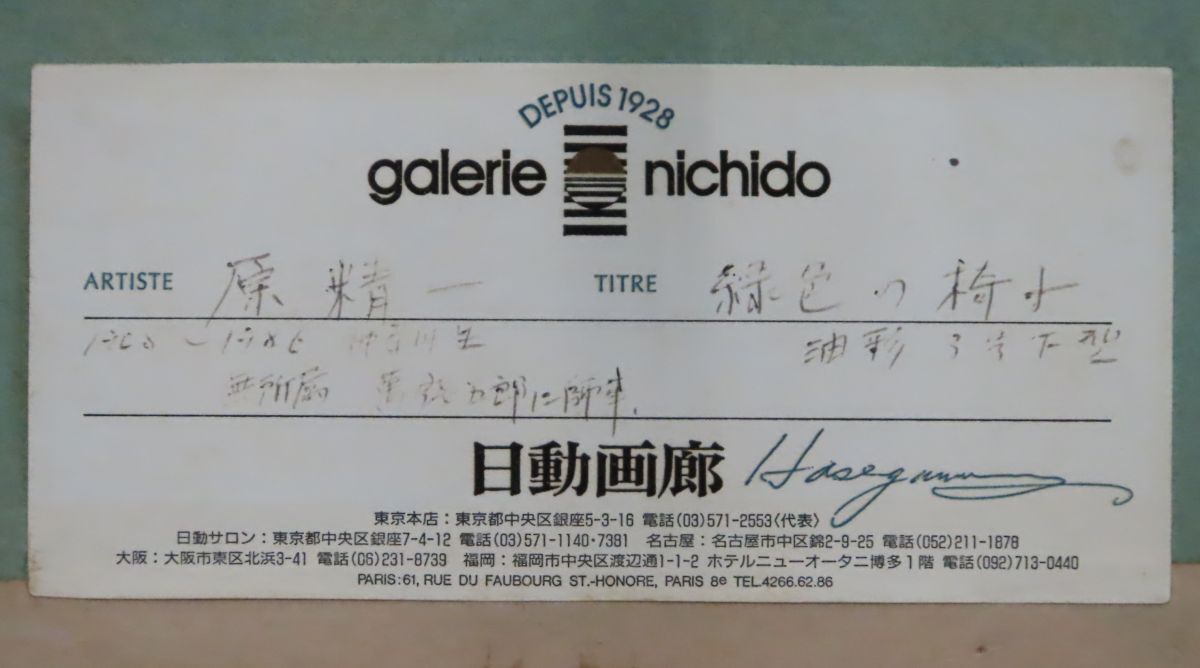 DEPUIS 1928
galerie nichido
ARTISTE 原 精一 TITRE 緑色の椅子
神奈川生 油彩 3号F型
無所属 萬鉄五郎に師事.
日動画廊 Hasegawa
東京本店：東京都中央区銀座5-3-16 電話(03)571-2553〈代表〉
日動サロン：東京都中央区銀座7-4-12 電話(03)571-1140・7381 名古屋：名古屋市中区錦2-9-25 電話(052)211-1878
大阪：大阪市東区北浜3-41 電話(06)231-8739 福岡：福岡市中央区渡辺通1-1-2 ホテルニューオータニ博多1階 電話(092)713-0440
PARIS:61, RUE DU FAUBOURG ST.-HONORE, PARIS 8e TEL.4266.62.86